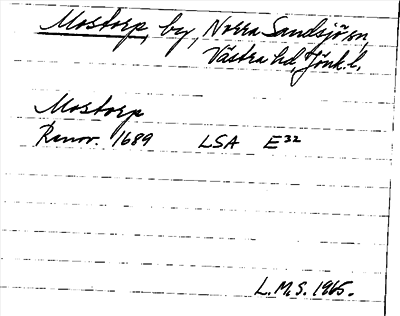 Mostorp, by, Norra Sandsjö sn,
Västra hd, Jönk. l.
Mostorp
Renov. 1689 LSA E32
L.M.S. 1965.